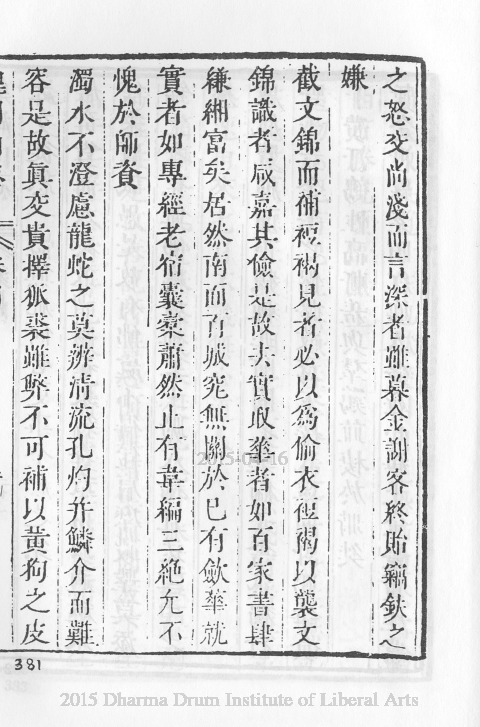 之怒交尚淺而言深者雖暮金謝客終貽竊鈇之
嫌
截文錦而補裋褐見者必以為偷衣裋褐以襲文
錦識者咸嘉其儉是故去實取華者如百家書肆
縑緗富矣居然南面百城究無關於己有斂華就
實者如專經老宿囊橐蕭然止有韋編三絕允不
愧於師資
濁水不澄慮龍蛇之莫辨清流孔灼并鱗介而難
容是故真交貴擇狐裘雖弊不可補以黃狗之皮
2015-04-16
381
2015 Dharma Drum Institute of Liberal Arts